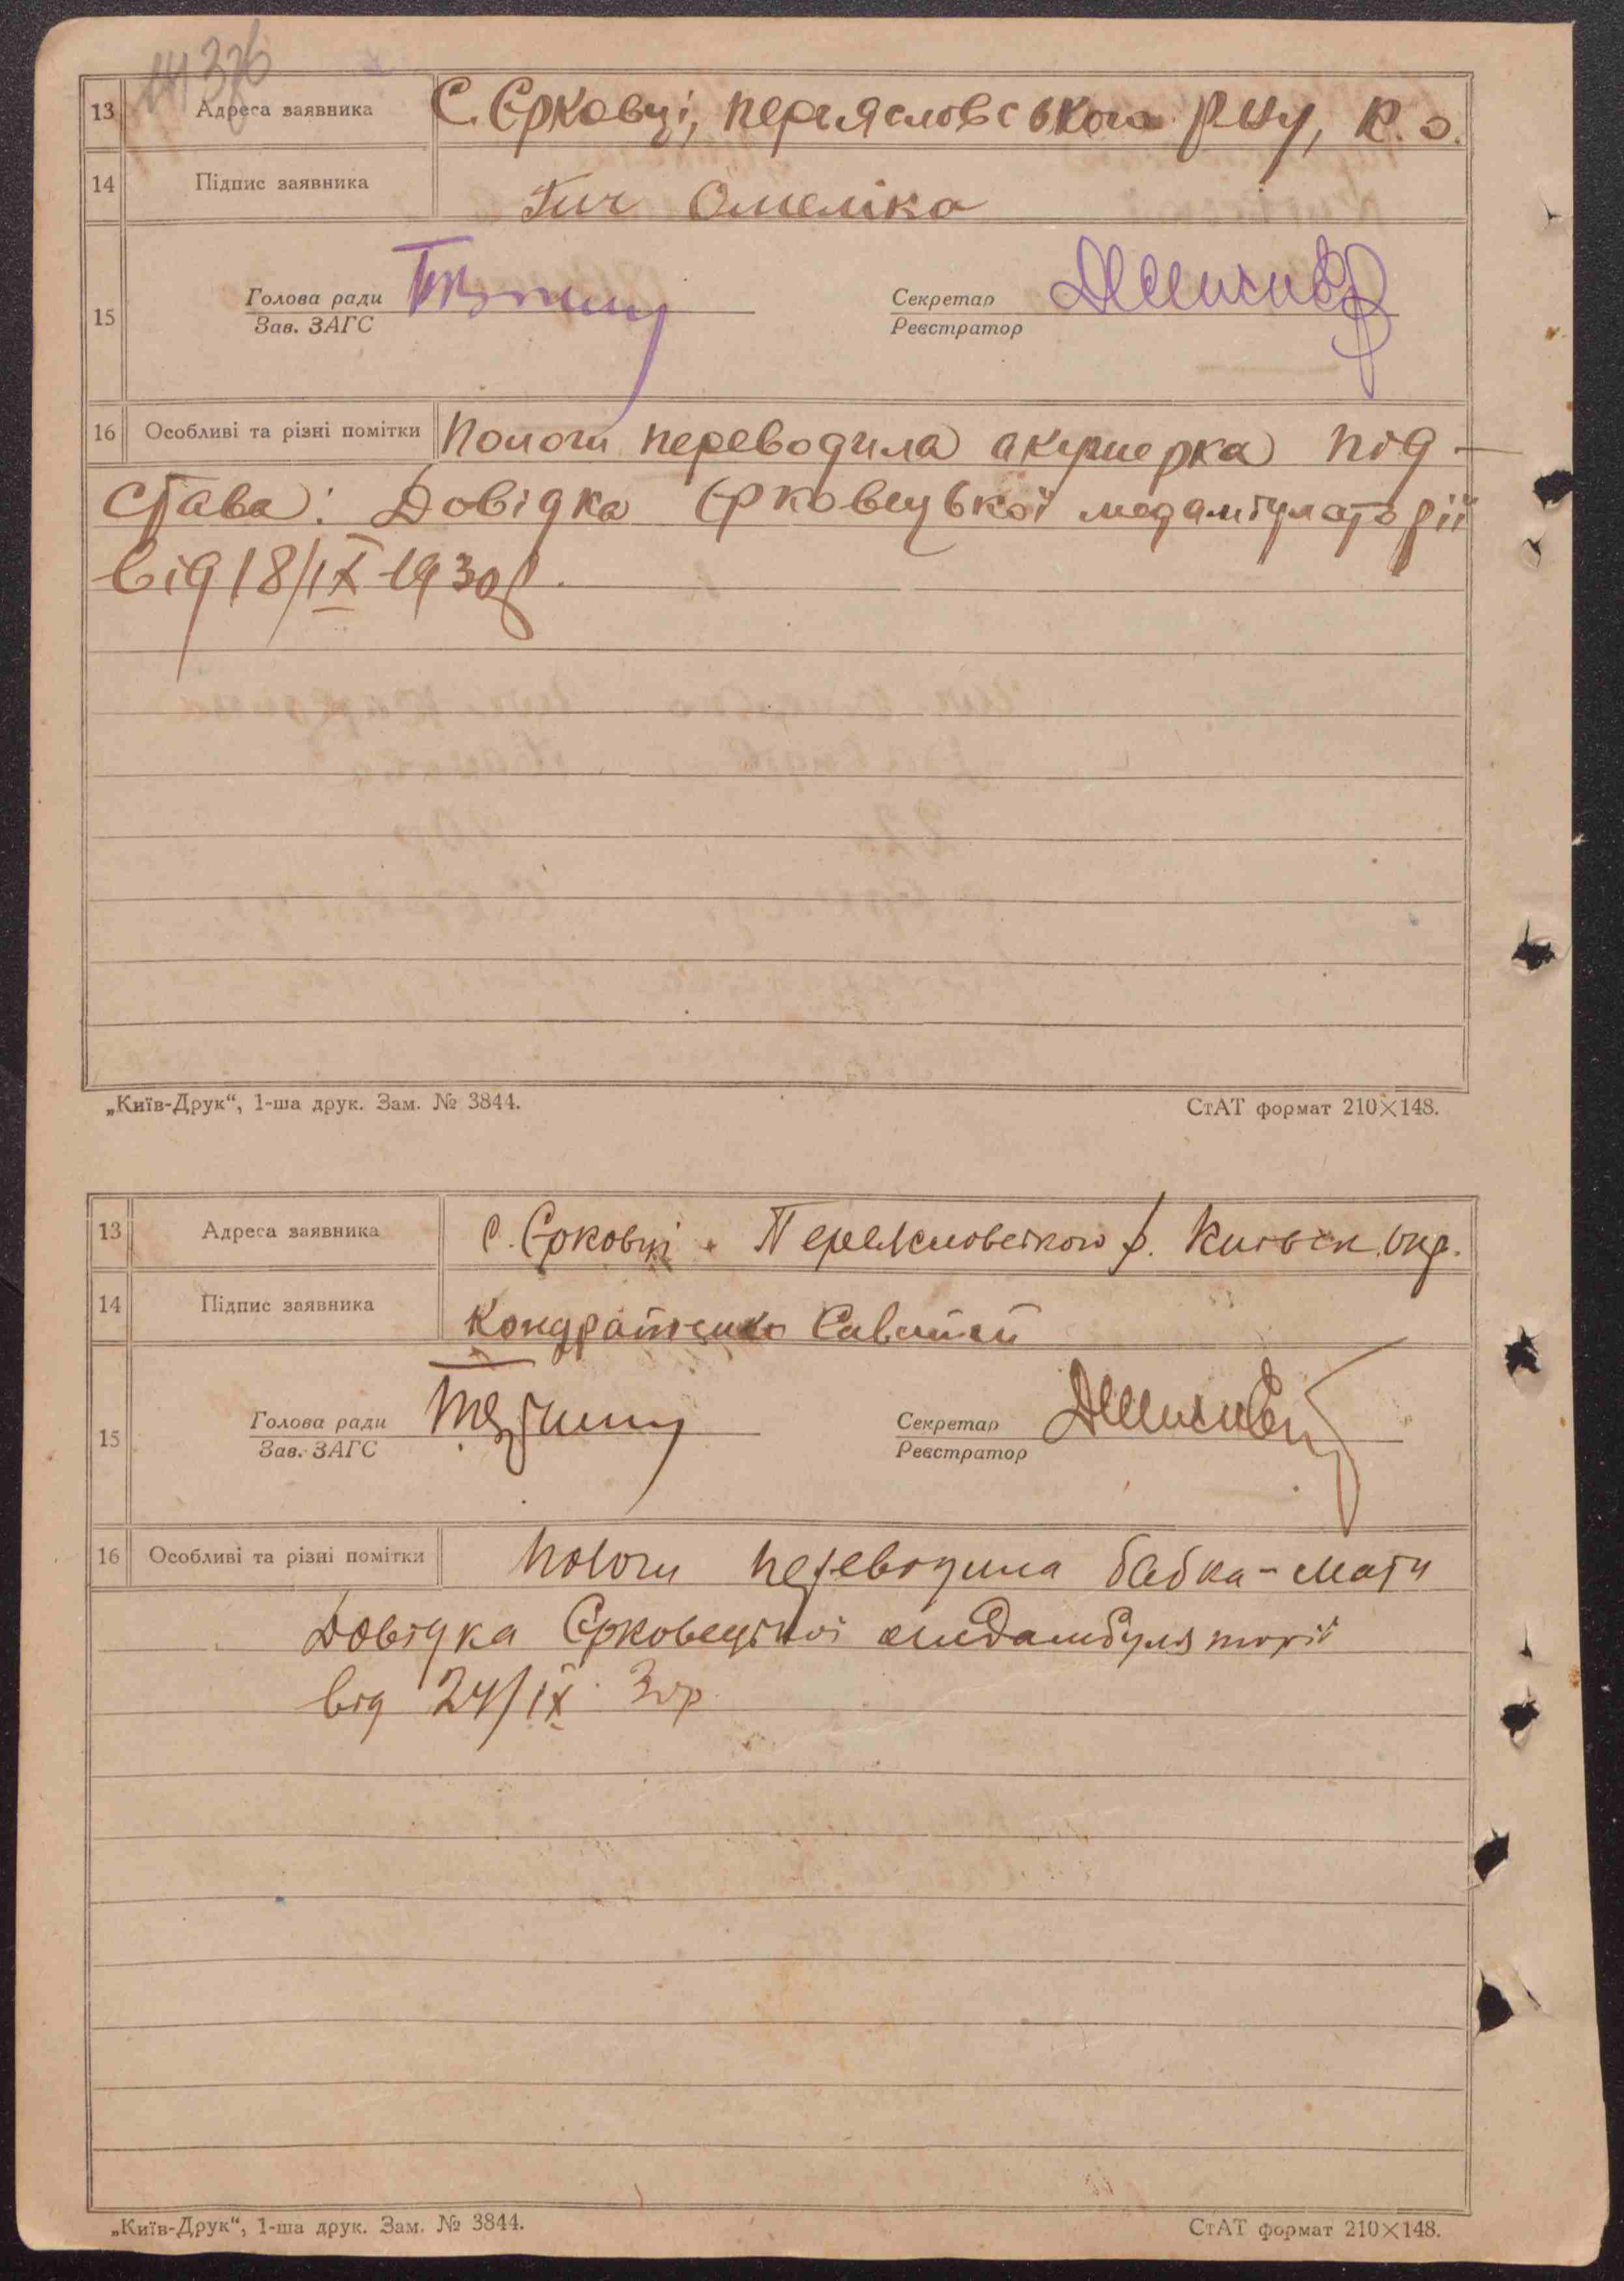 376
13 Адреса заявника С. Єрковці, переясловського р-ну, К. о.
14 Підпис заявника Гич Омеліка
15 Голова ради Секретар
Зав. ЗАГС Реєстратор
16 Особливі та різні помітки Пологи переводила акушерка під-
става: Довідка Єрковецької медамбулаторії
від 18/IX 1930р.
„Київ-Друк“, 1-ша друк. Зам. № 3844. СтАТ формат 210×148.
13 Адреса заявника С. Єрковці Переясловського р. Київськ. окр.
14 Підпис заявника Кондратенко Саватій
15 Голова ради Секретар
Зав. ЗАГС Реєстратор
16 Особливі та різні помітки Пологи переводила бабка-мати
Довідка Єрковецької медамбуляторії
від 24/IX 30р.
„Київ-Друк“, 1-ша друк. Зам. № 3844. СтАТ формат 210×148.